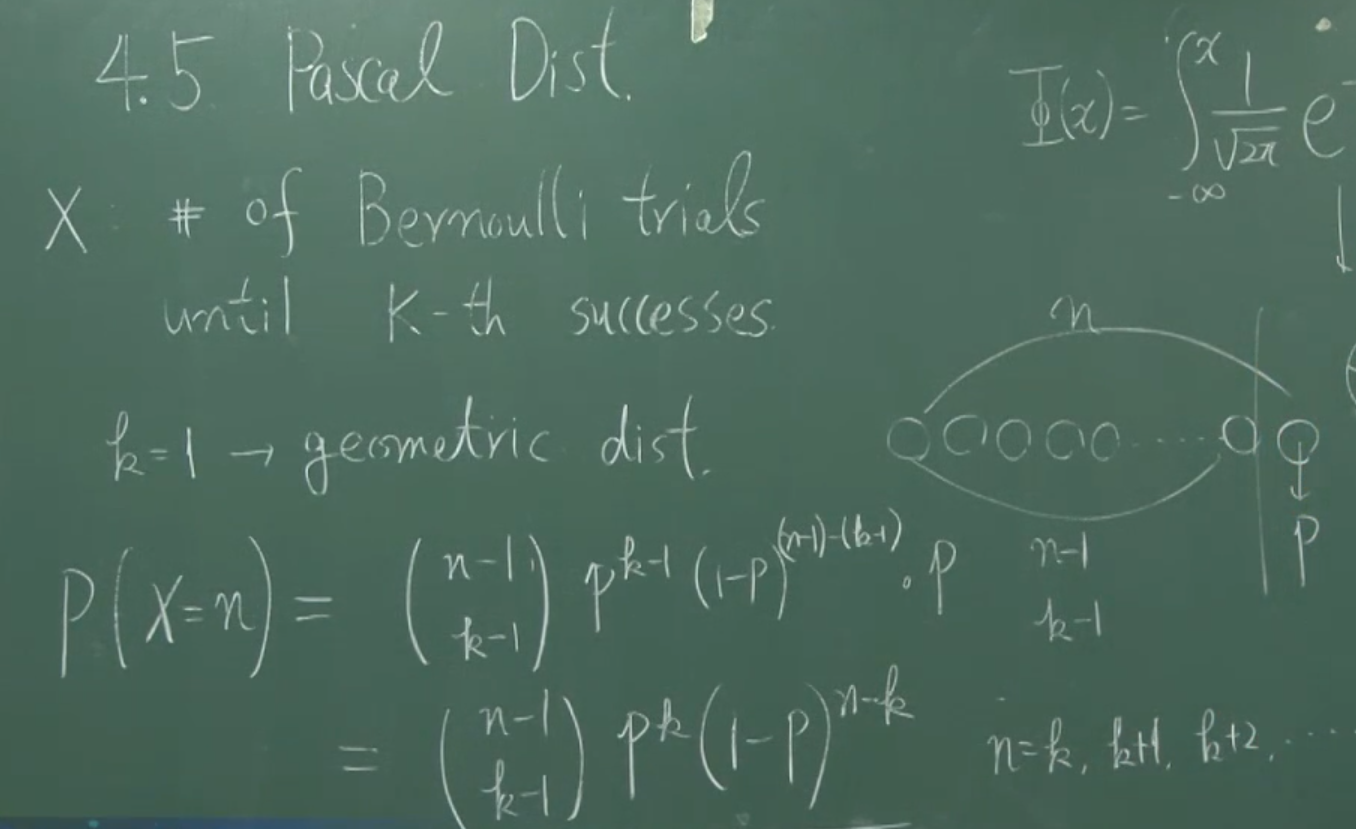 4.5 Pascal Dist.
X : # of Bernoulli trials
until K-th successes.
k=1 → geometric dist.
P(X=n) = (n-1 k-1) p^{k-1} (1-p)^{(n-1)-(k-1)} · p
= (n-1 k-1) p^k (1-p)^{n-k}
n=k, k+1, k+2, ·····
Φ(x) = ∫_{-∞}^{x} 1/√2π e^-
n
p
n-1
k-1